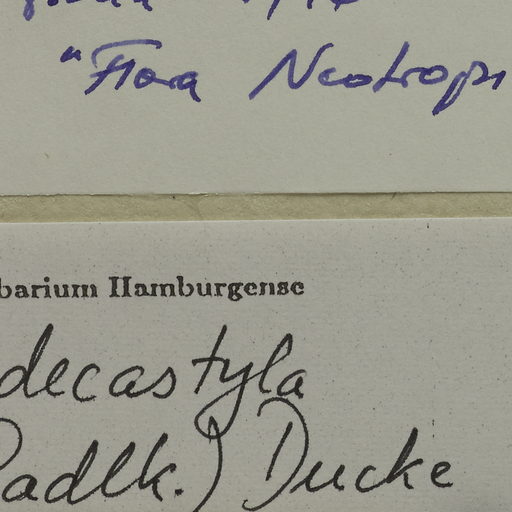 "Flora Neotrop
barium Hamburgense
decastyla
Radlk.) Ducke